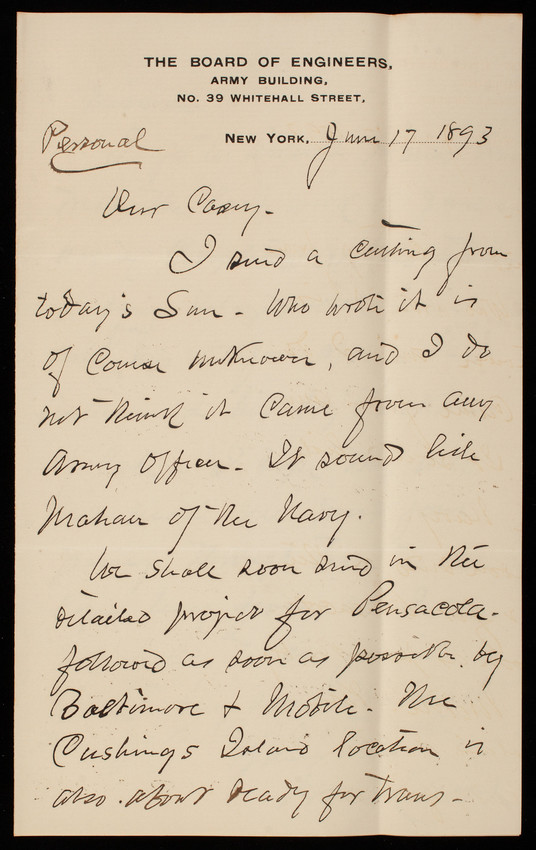 THE BOARD OF ENGINEERS,
ARMY BUILDING,
No. 39 WHITEHALL STREET,
Personal
NEW YORK, June 17 1893
Dear Casey -
I send a cutting from
today's Sun - Who wrote it is
of course unknown, and I do
not think it came from any
Army Officer - It sounds like
Mahan of the Navy.
We shall soon send in the
detailed project for Pensacola -
followed as soon as possible by
Baltimore & Mobile - The
Cushings Island location is
also about ready for trans-